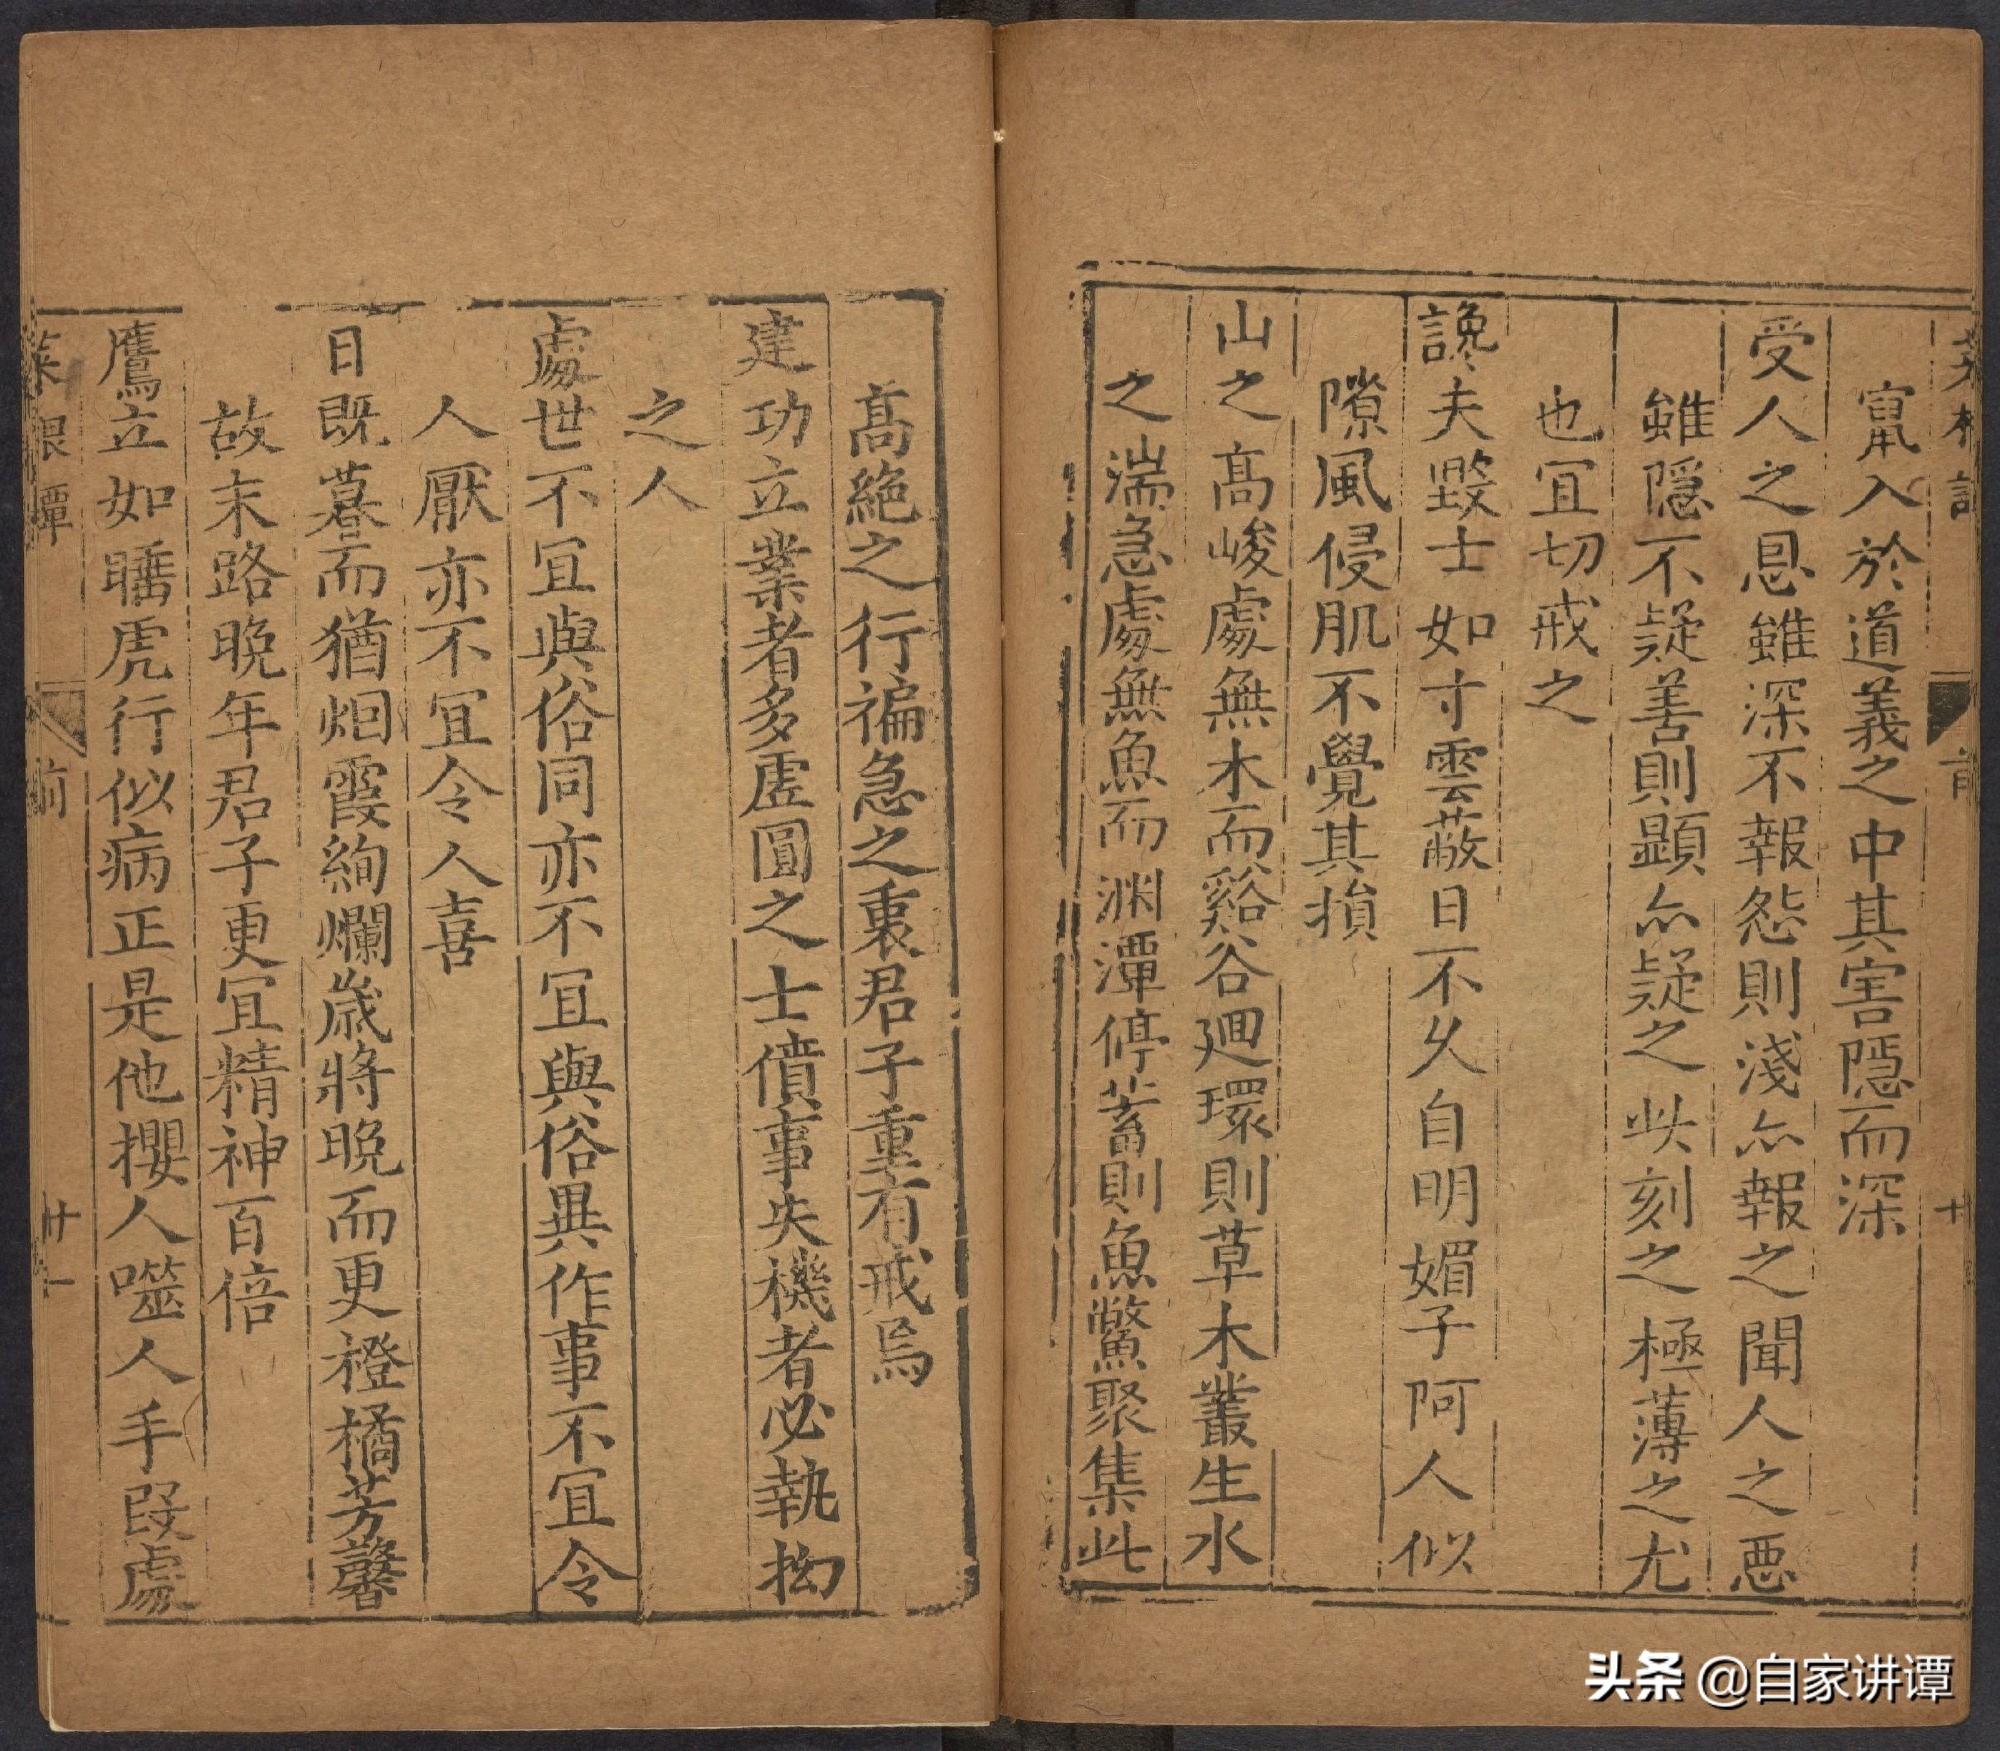 竄入於道義之中其害隱而深
受人之恩雖深不報怨則淺亦報之聞人之惡
雖隱不疑善則顯亦疑之此刻之極薄之尤
也宜切戒之
讒夫毀士如寸雲蔽日不久自明媚子阿人似
隙風侵肌不覺其損
山之髙峻處無木而谿谷廻環則草木叢生水
之湍急處無魚而渊潭停蓄則魚鱉聚集此
髙絶之行褊急之衷君子重有戒焉
建功立業者多虛圓之士僨事失機者必執拗
之人
處世不宜與俗同亦不宜與俗異作事不宜令
人厭亦不宜令人喜
日既暮而猶烟霞絢爛歳將晚而更橙橘芳馨
故末路晚年君子更宜精神百倍
鷹立如睡虎行似病正是他攖人噬人手段處
菜根譚 前 廿一
头条 @自家讲谭